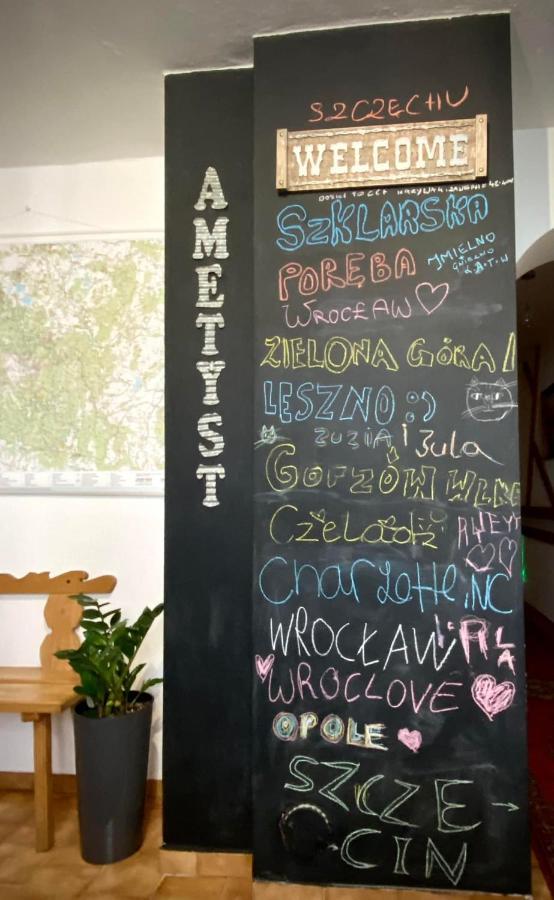 AMETYST
SZCZĘCHU
WELCOME
SZKLARSKA
PORĘBA
JMIELNO
WROCŁAW
ZIELONA GÓRA!
LESZNO :)
ZUZIA i Zula
GOFZÓW WLKP
Czeladź
Charlotte, NC
WROCŁAW
WROCLOVE
OPOLE
SZCZE →
CIN